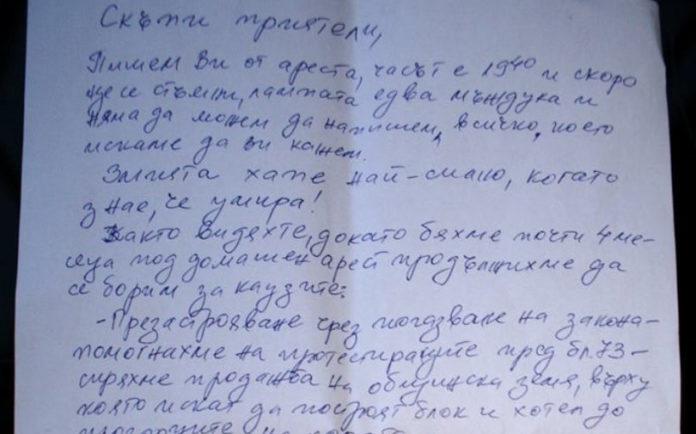 Скъпи приятели,
Пишем Ви от ареста, часът е 19⁴⁰ и скоро
ще се стъмни, лампата едва мъждука и
няма да можем да напишем, всичко, което
искаме да ви кажем.
Змията хапе най-силно, когато
знае, че умира!
Както видяхте, докато бяхме почти 4 ме-
сеца под домашен арест продължихме да
се борим за каузите:
-Презастрояване чрез погазване на закона-
помогнахме на протестиращите пред бл.73-
спряхме продажба на общинска земя, върху
която искат да построят блок и хотел до